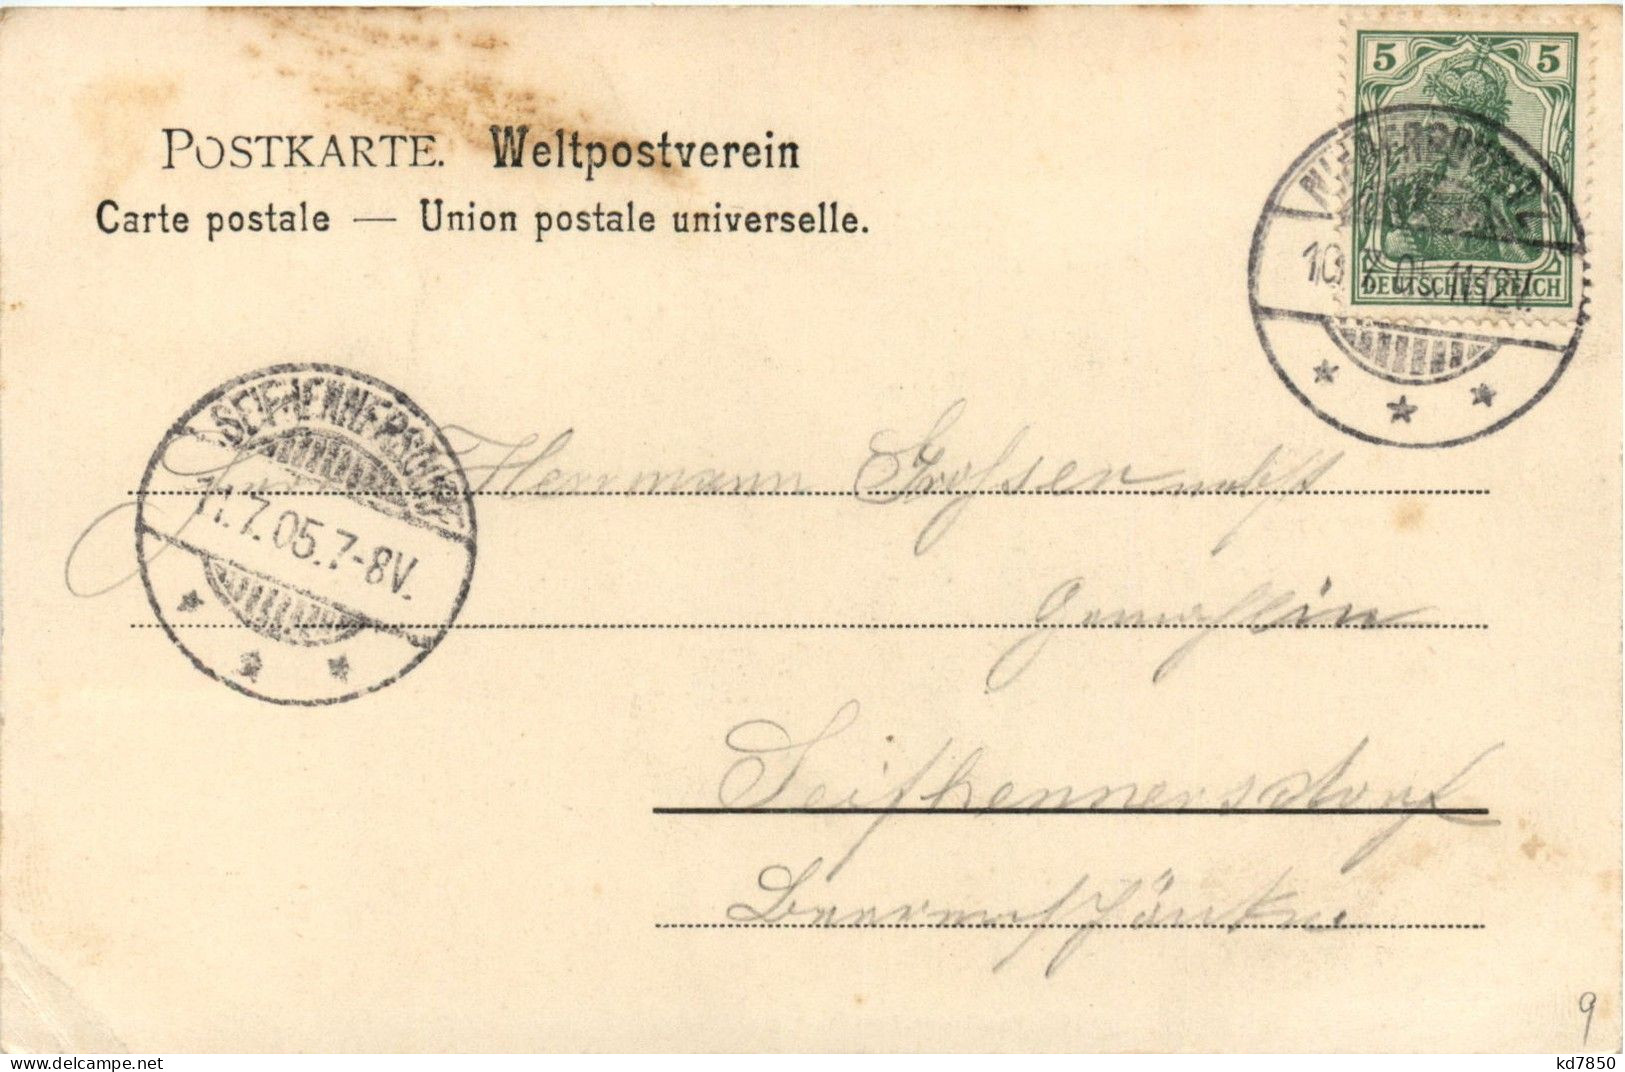 5 5
POSTKARTE. Weltpostverein
Carte postale — Union postale universelle.
10.7.05.11-12V.
DEUTSCHES REICH
SEIFHENNERSDORF
11.7.05.7-8V.
Herrmann
Gemahlin
Seifhennersdorf
9
www.delcampe.net
kd7850